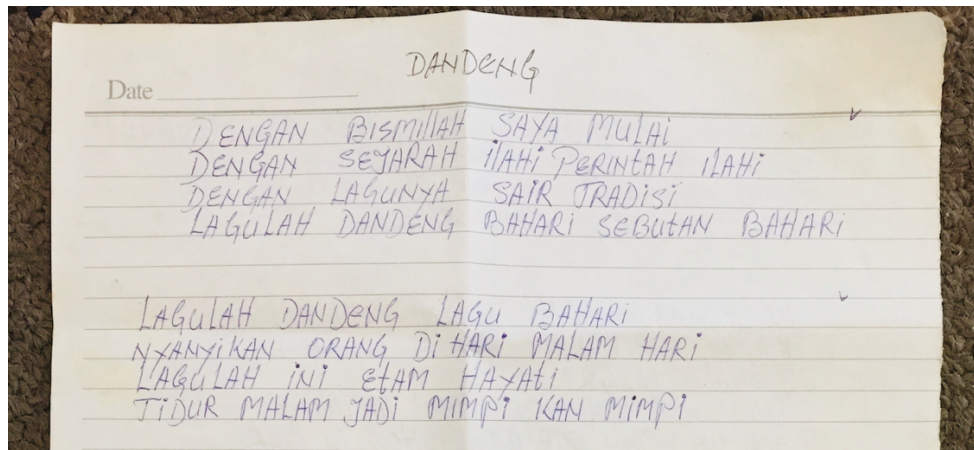 DANDENG
Date
DENGAN BISMILLAH SAYA MULAI
DENGAN SEJARAH ILAHI PERINTAH ILAHI
DENGAN LAGUNYA SAIR TRADISI
LAGULAH DANDENG BAHARI SEBUTAN BAHARI
LAGULAH DANDENG LAGU BAHARI
NYANYIKAN ORANG DI HARI MALAM HARI
LAGULAH INI ETAM HAYATI
TIDUR MALAM JADI MIMPI KAN MIMPI